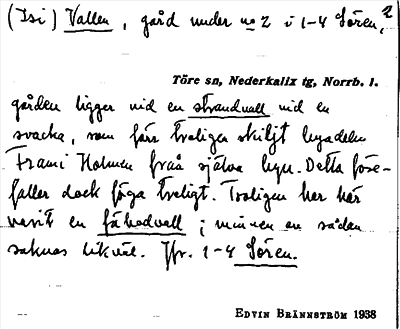 (Isi) Vallen, gård under no 2 i 1-4 Sören, 2
Töre sn, Nederkalix tg, Norrb. l.
gården ligger vid en strandvall vid en
svacka, som förr troligen skiljt byadelen
Frami Holmen från själva byn. Detta före-
faller dock föga troligt. Troligen har här
varit en fäbodvall; minnen en sådan
saknas likväl. Jfr. 1-4 Sören.
EDVIN BRÄNNSTRÖM 1938